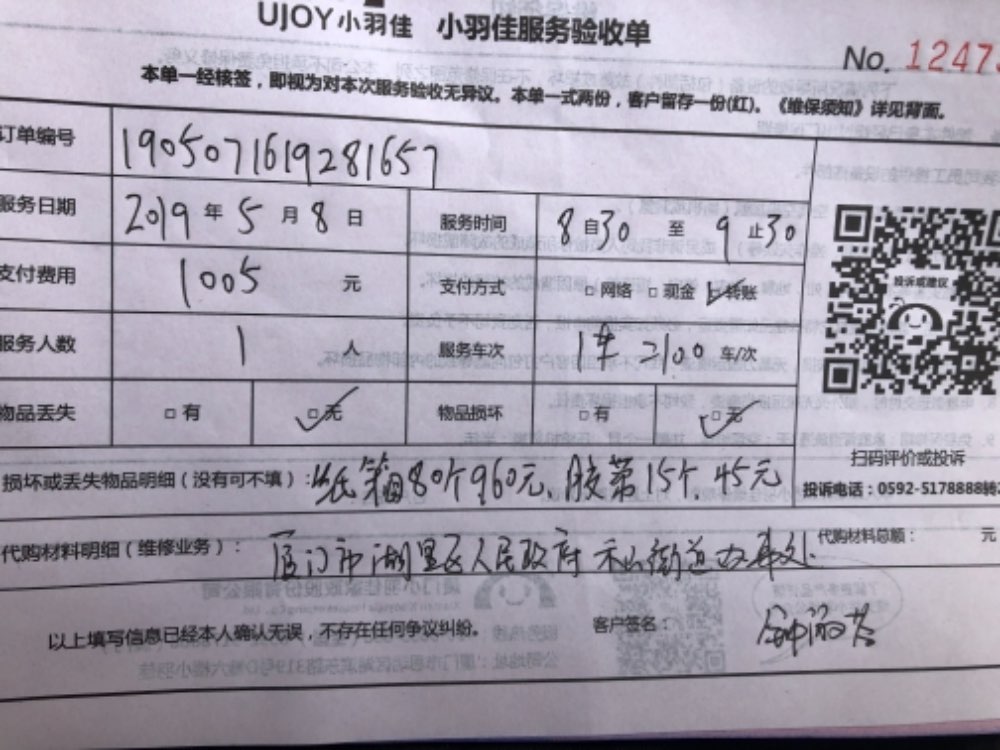 UJOY小羽佳 小羽佳服务验收单
No. 1247
本单一经核签，即视为对本次服务验收无异议。本单一式两份，客户留存一份(红)。《维保须知》详见背面。
订单编号 1905071619281657
服务日期 2019 年 5 月 8 日 服务时间 8 自30 至 9 止30
支付费用 1005 元 支付方式 □网络 □现金 ☑转账
服务人数 1 人 服务车次 1车 车/次
物品丢失 □有 ☑无 物品损坏 □有 ☑无
投诉或建议
扫码评价或投诉
投诉电话：0592-5178888转
损坏或丢失物品明细（没有可不填）：纸箱80个960元，胶带15个45元
代购材料明细（维修业务）：厦门市湖里区人民政府禾山街道办事处. 代购材料总额： 元
以上填写信息已经本人确认无误，不存在任何争议纠纷。 客户签名：